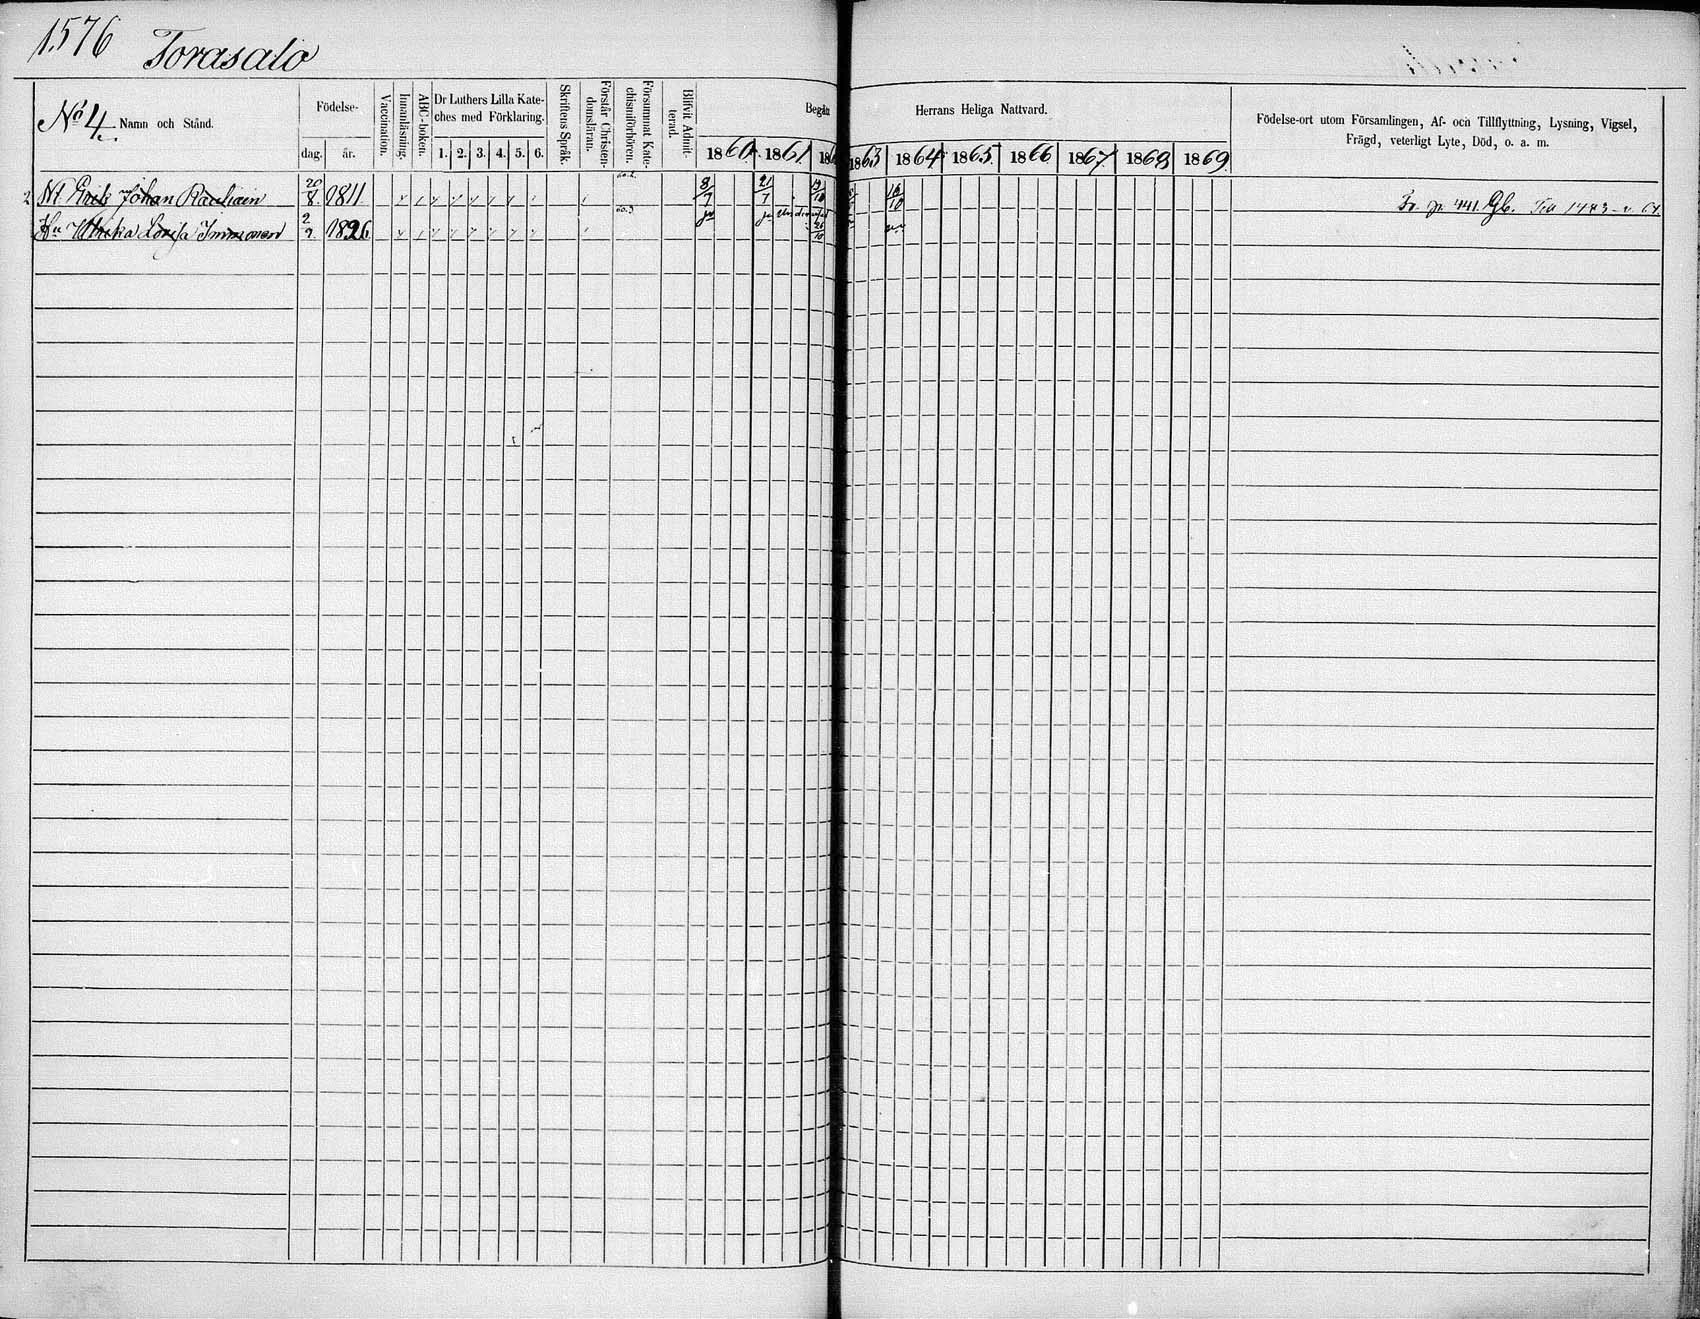 1576 Torasalo
No 4. Namn och Stånd.
Födelse-
dag. år.
Vaccination.
Innanläsning.
ABC-boken.
Dr Luthers Lilla Kate-
ches med Förklaring.
1. 2. 3. 4. 5. 6.
Skriftens Språk.
Förstår Christen-
domsläran.
Försummat Kate-
chismiförhören.
Blifvit Admit-
terad.
Begått Herrans Heliga Nattvard.
1860. 1861 186 1863 1864 1865 1866 1867 1868 1869
Födelse-ort utom Församlingen, Af- och Tillflyttning, Lysning, Vigsel,
Frägd, veterligt Lyte, Död, o. a. m.
2 Erik Johan 20/8. 1811 60.2. 8/7 21/7 19/10 18/10 441 Gb. Till 1483
Hu Ulrika Lovisa Immonen 2/2. 1826 60.3